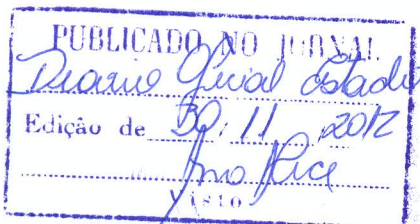 PUBLICADO NO JORNAL
Diario Oficial Estado
Edição de 30/11/2012
Visto